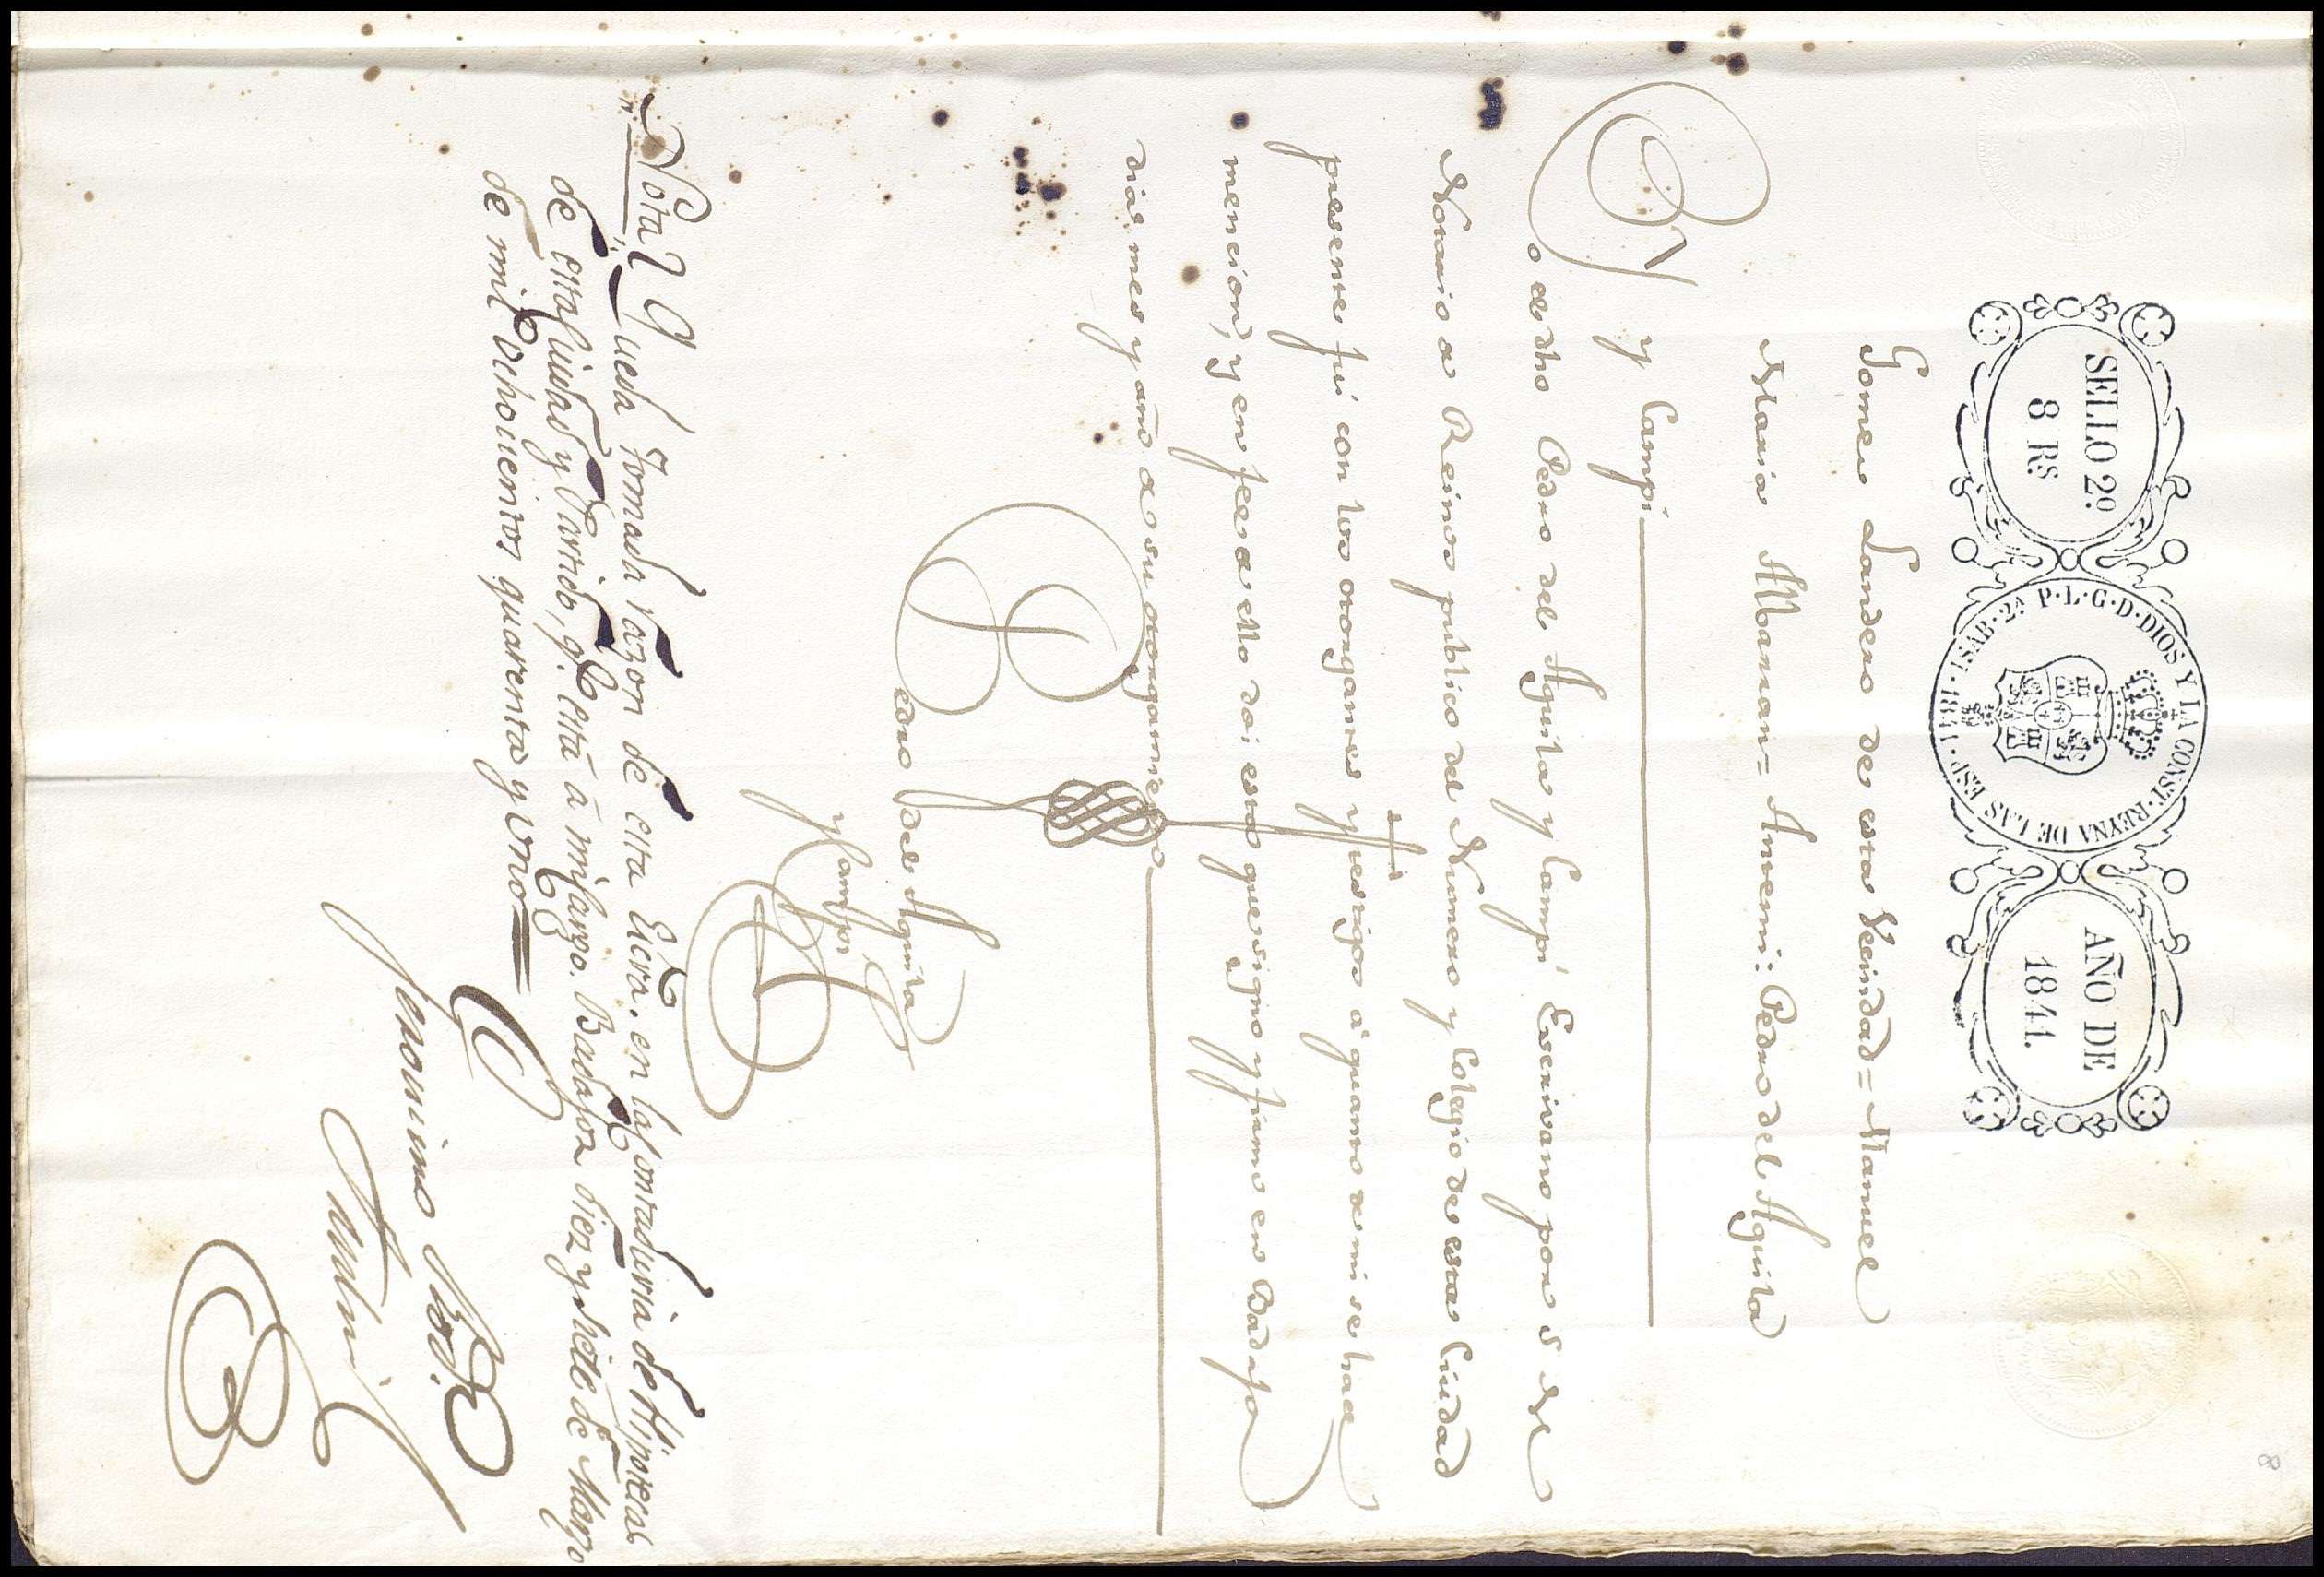 SELLO 2º.
8 Rs
ISAB. 2ª P. L. G. D. DIOS Y LA CONST. REYNA DE LAS ESP. 1841.
AÑO DE
1841.
8
Gomez Landero de esta Vecindad = Manuel
Maria Albarran = Antemi: Pedro del Aguila
y Campi
Yo el dho Pedro del Aguila y Campi Escrivano por S. M.
Notario de Reinos publico del Numero y Colegio de esta Ciudad
presente fui con los otorgantes y testigos á quanto de mi se hace
mencion, y en fee de ello doi esta que signo y firmo en Badajoz
dia mes y año de su otorgamiento
Pedro del Aguila
y Campi
Nota Queda tomada razon de esta Escra. en la Contaduria de Hipotecas
de esta Ciudad y Partido, q.e está á mi Cargo. Badajoz diez y siete de Marzo
de mil ochocientos quarenta y uno =
Geronimo